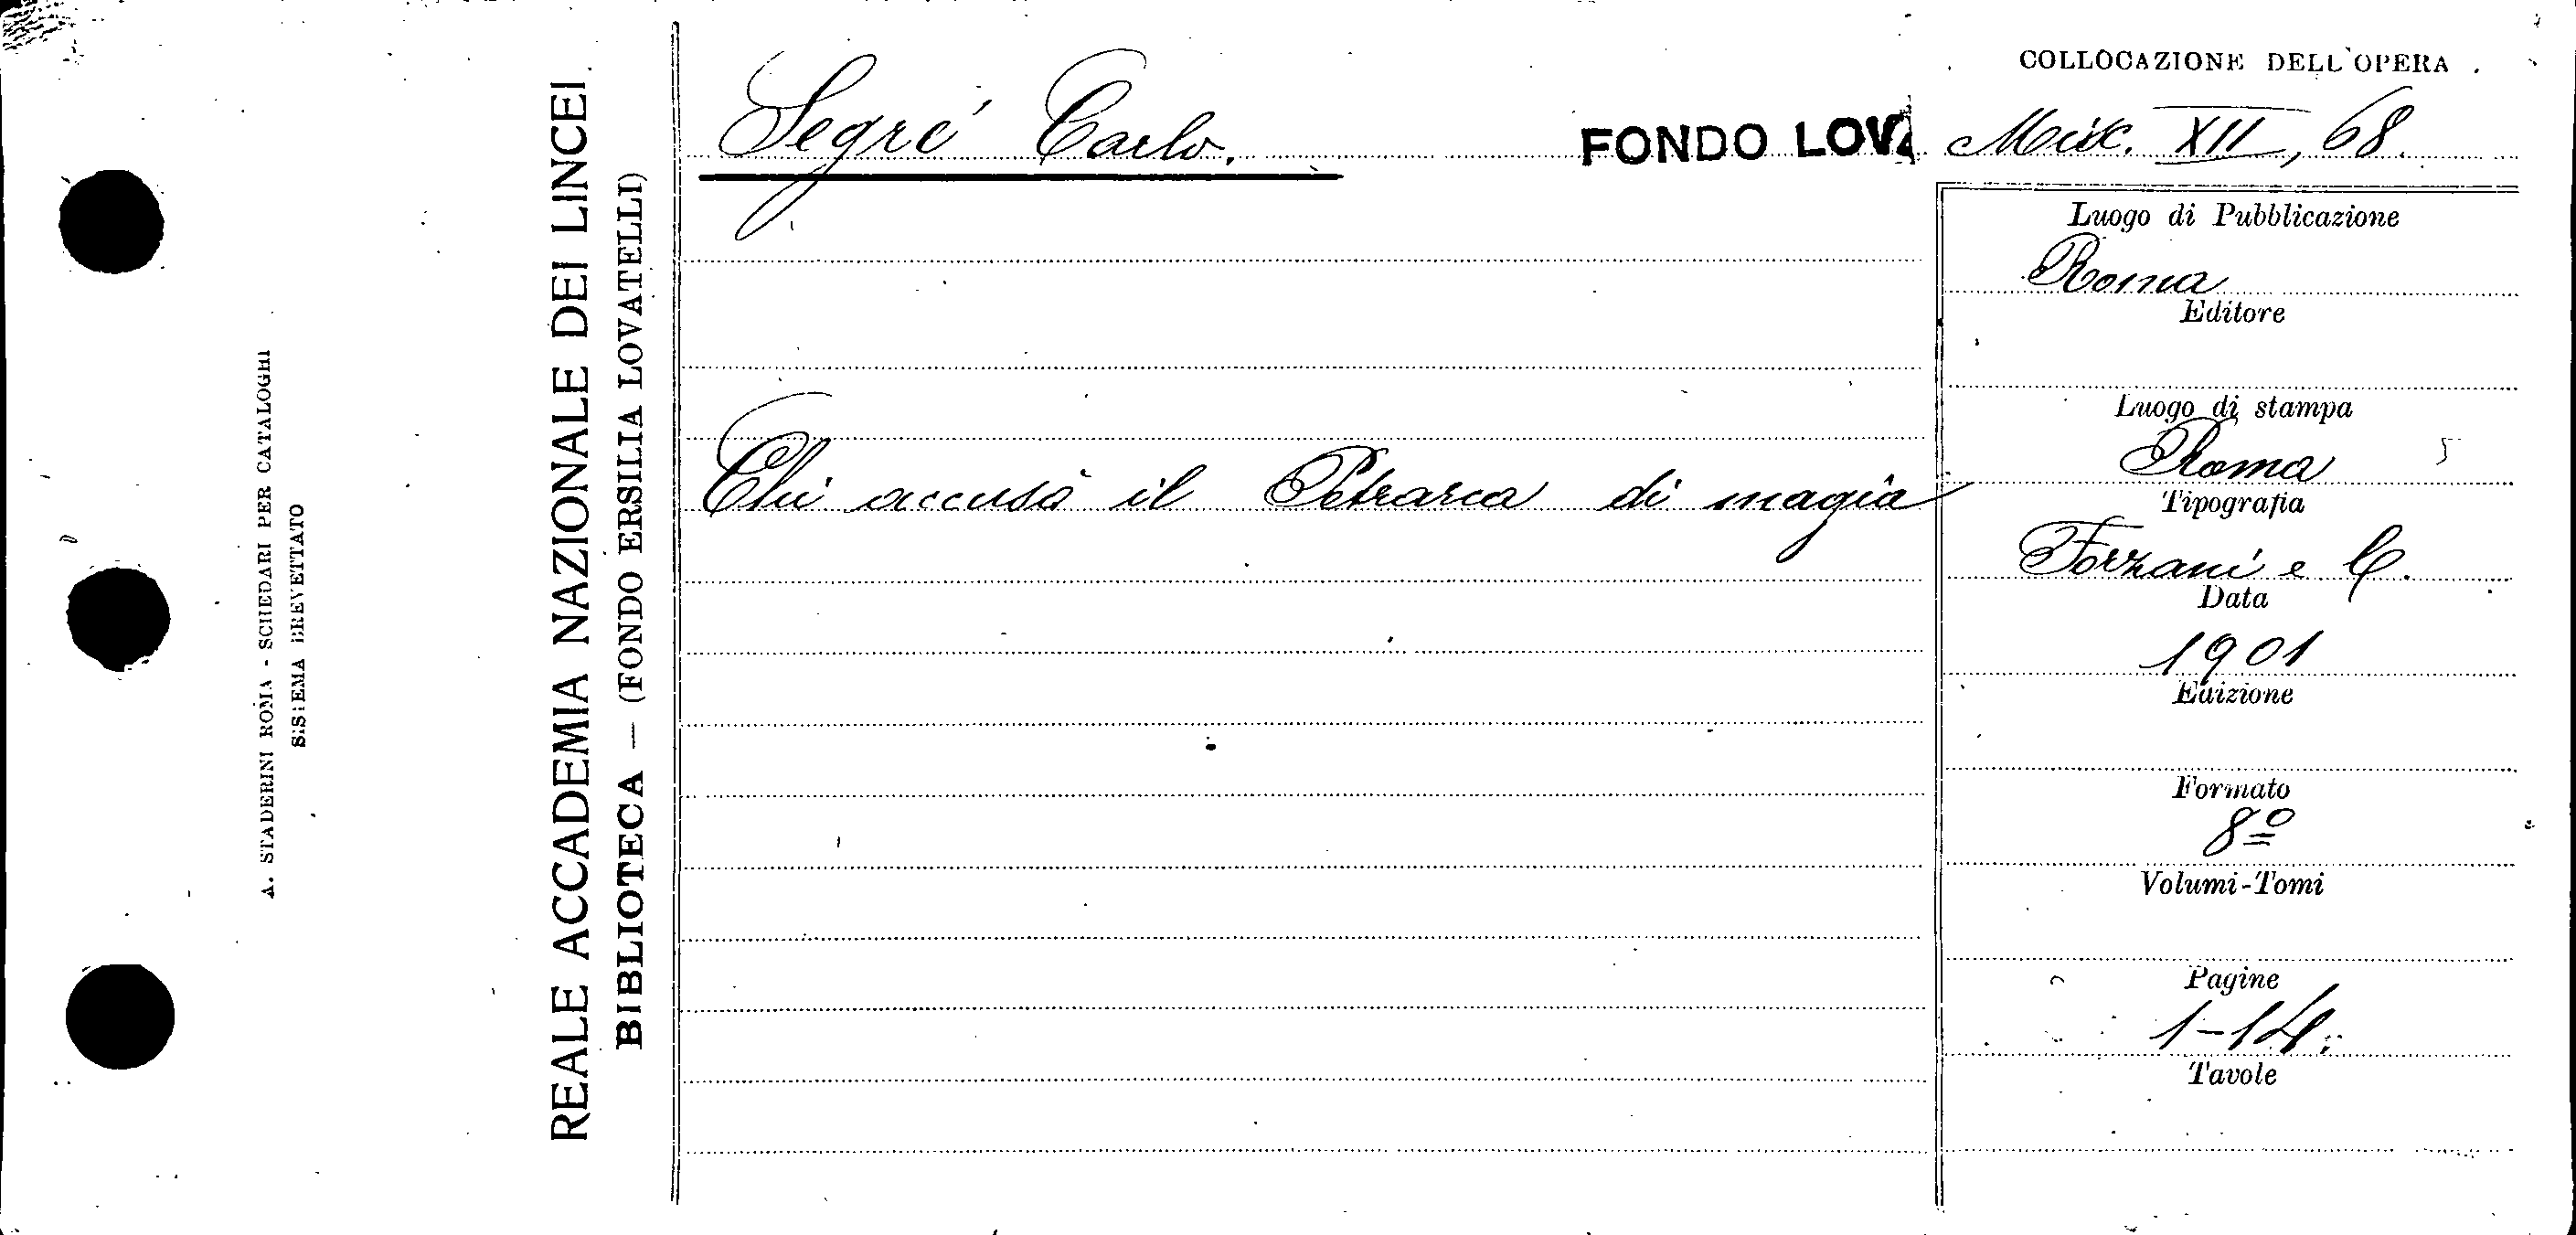 A. STADERINI ROMA - SCHEDARI PER CATALOGHI
SISTEMA BREVETTATO
REALE ACCADEMIA NAZIONALE DEI LINCEI
BIBLIOTECA — (FONDO ERSILIA LOVATELLI)
Segré Carlo.
FONDO LOVA
Chi accusò il Petrarca di magia
COLLOCAZIONE DELL'OPERA
Misc. XII, 68.
Luogo di Pubblicazione
Roma
Editore
Luogo di stampa
Roma
Tipografia
Forzani e C.
Data
1901
Edizione
Formato
8º
Volumi-Tomi
Pagine
1-14.
Tavole